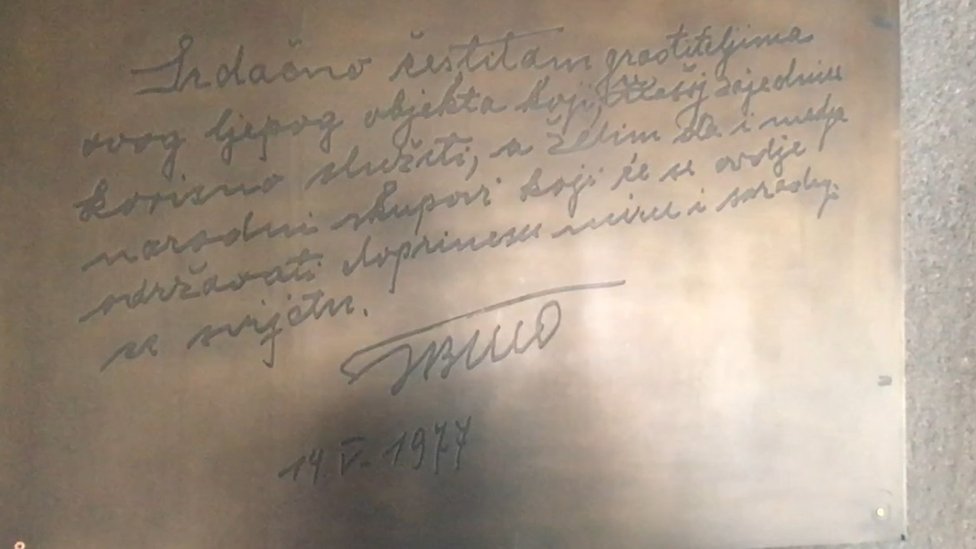 Srdačno čestitam graditeljima
ovog ljepog objekta koji našoj zajednici
korisno služiti, a želim da i medju
narodni skupovi koji će se ovdje
održavati doprinesu miru i saradnji
u svijetu.
14.V. 1977